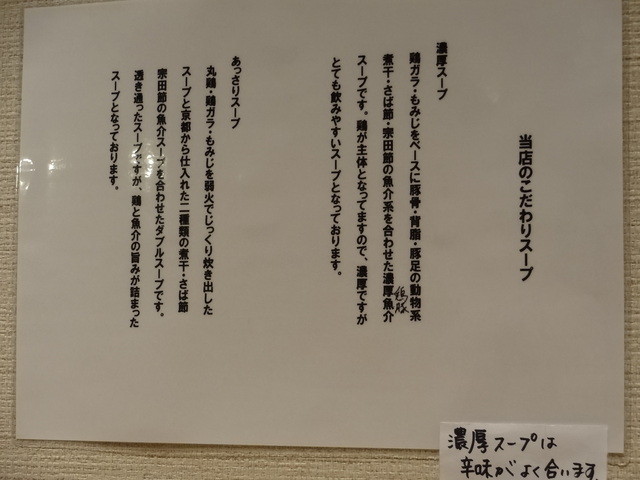 当店のこだわりスープ
濃厚スープ
鶏ガラ・もみじをベースに豚骨・背脂・豚足の動物系
煮干・さば節・宗田節の魚介系を合わせた濃厚魚介
スープです。鶏が主体となってますので、濃厚ですが
とても飲みやすいスープとなっております。
あっさりスープ
丸鶏・鶏ガラ・もみじを弱火でじっくり炊き出した
スープと京都から仕入れた二種類の煮干・さば節
宗田節の魚介スープを合わせたダブルスープです。
透き通ったスープですが、鶏と魚介の旨みが詰まった
スープとなっております。
濃厚スープは
辛味がよく合います。